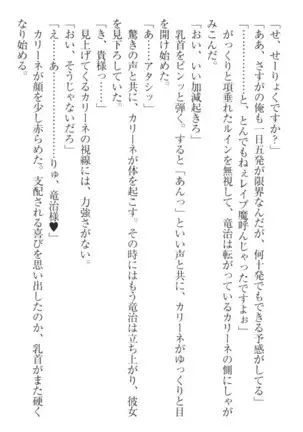 「せ、せーりょくですか？」
「ああ、さすがの俺も一日五発が限界なんだが、何十発でもできる予感がしてる」
「………と、とんでもねぇレイプ魔呼んじゃったですよぉ」
がっくりと項垂れたルインを無視して、竜治は転がっているカリーネの側にしゃが
みこんだ。
「おい、いい加減起きろ」
乳首をピンッと弾く。すると「あんっ」といい声と共に、カリーネがゆっくりと目
を開け始めた。
「……あ、アタシッ」
驚きの声と共に、カリーネが体を起こす。その時にはもう竜治は立ち上がり、彼女
を見下ろしていた。
「き、貴様っ……」
見上げてくるカリーネの視線には、力強さがない。
「おい、そうじゃないだろ」
「え……あ………………りゅ、竜治様♥」
カリーネが顔を少し赤らめた。支配される喜びを思い出したのか、乳首がまた硬く
なり始める。